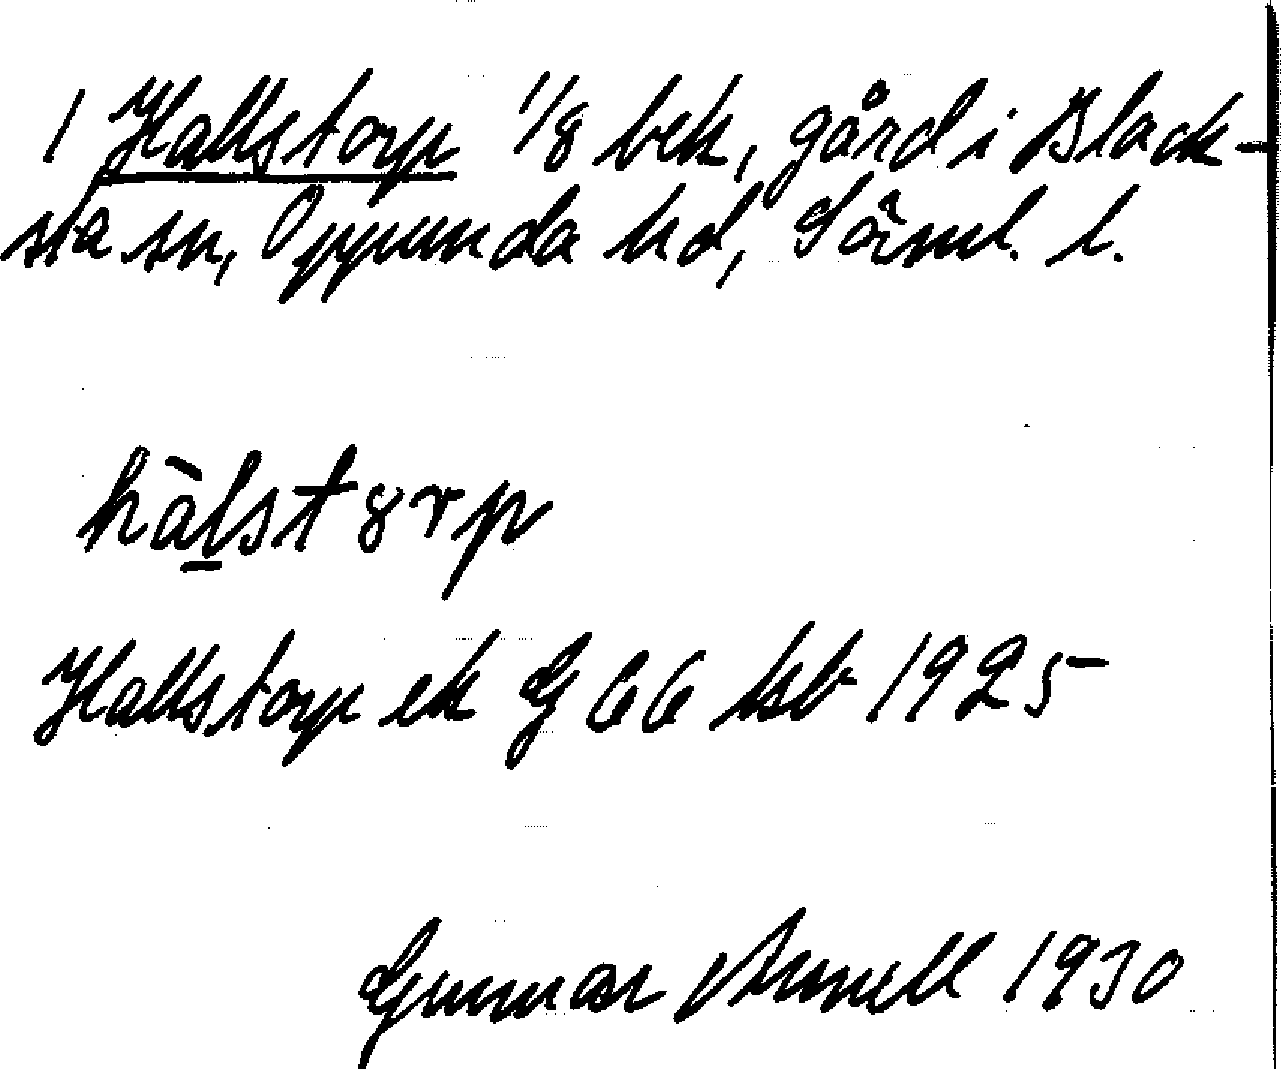 1 Hallstorp 1/8 bek, gård i Black-
sta sn, Oppunda hd, Sörml. l.
hàl̲storp
Hallstorp ek G 66 hsb 1925
Gunnar Arnell 1930